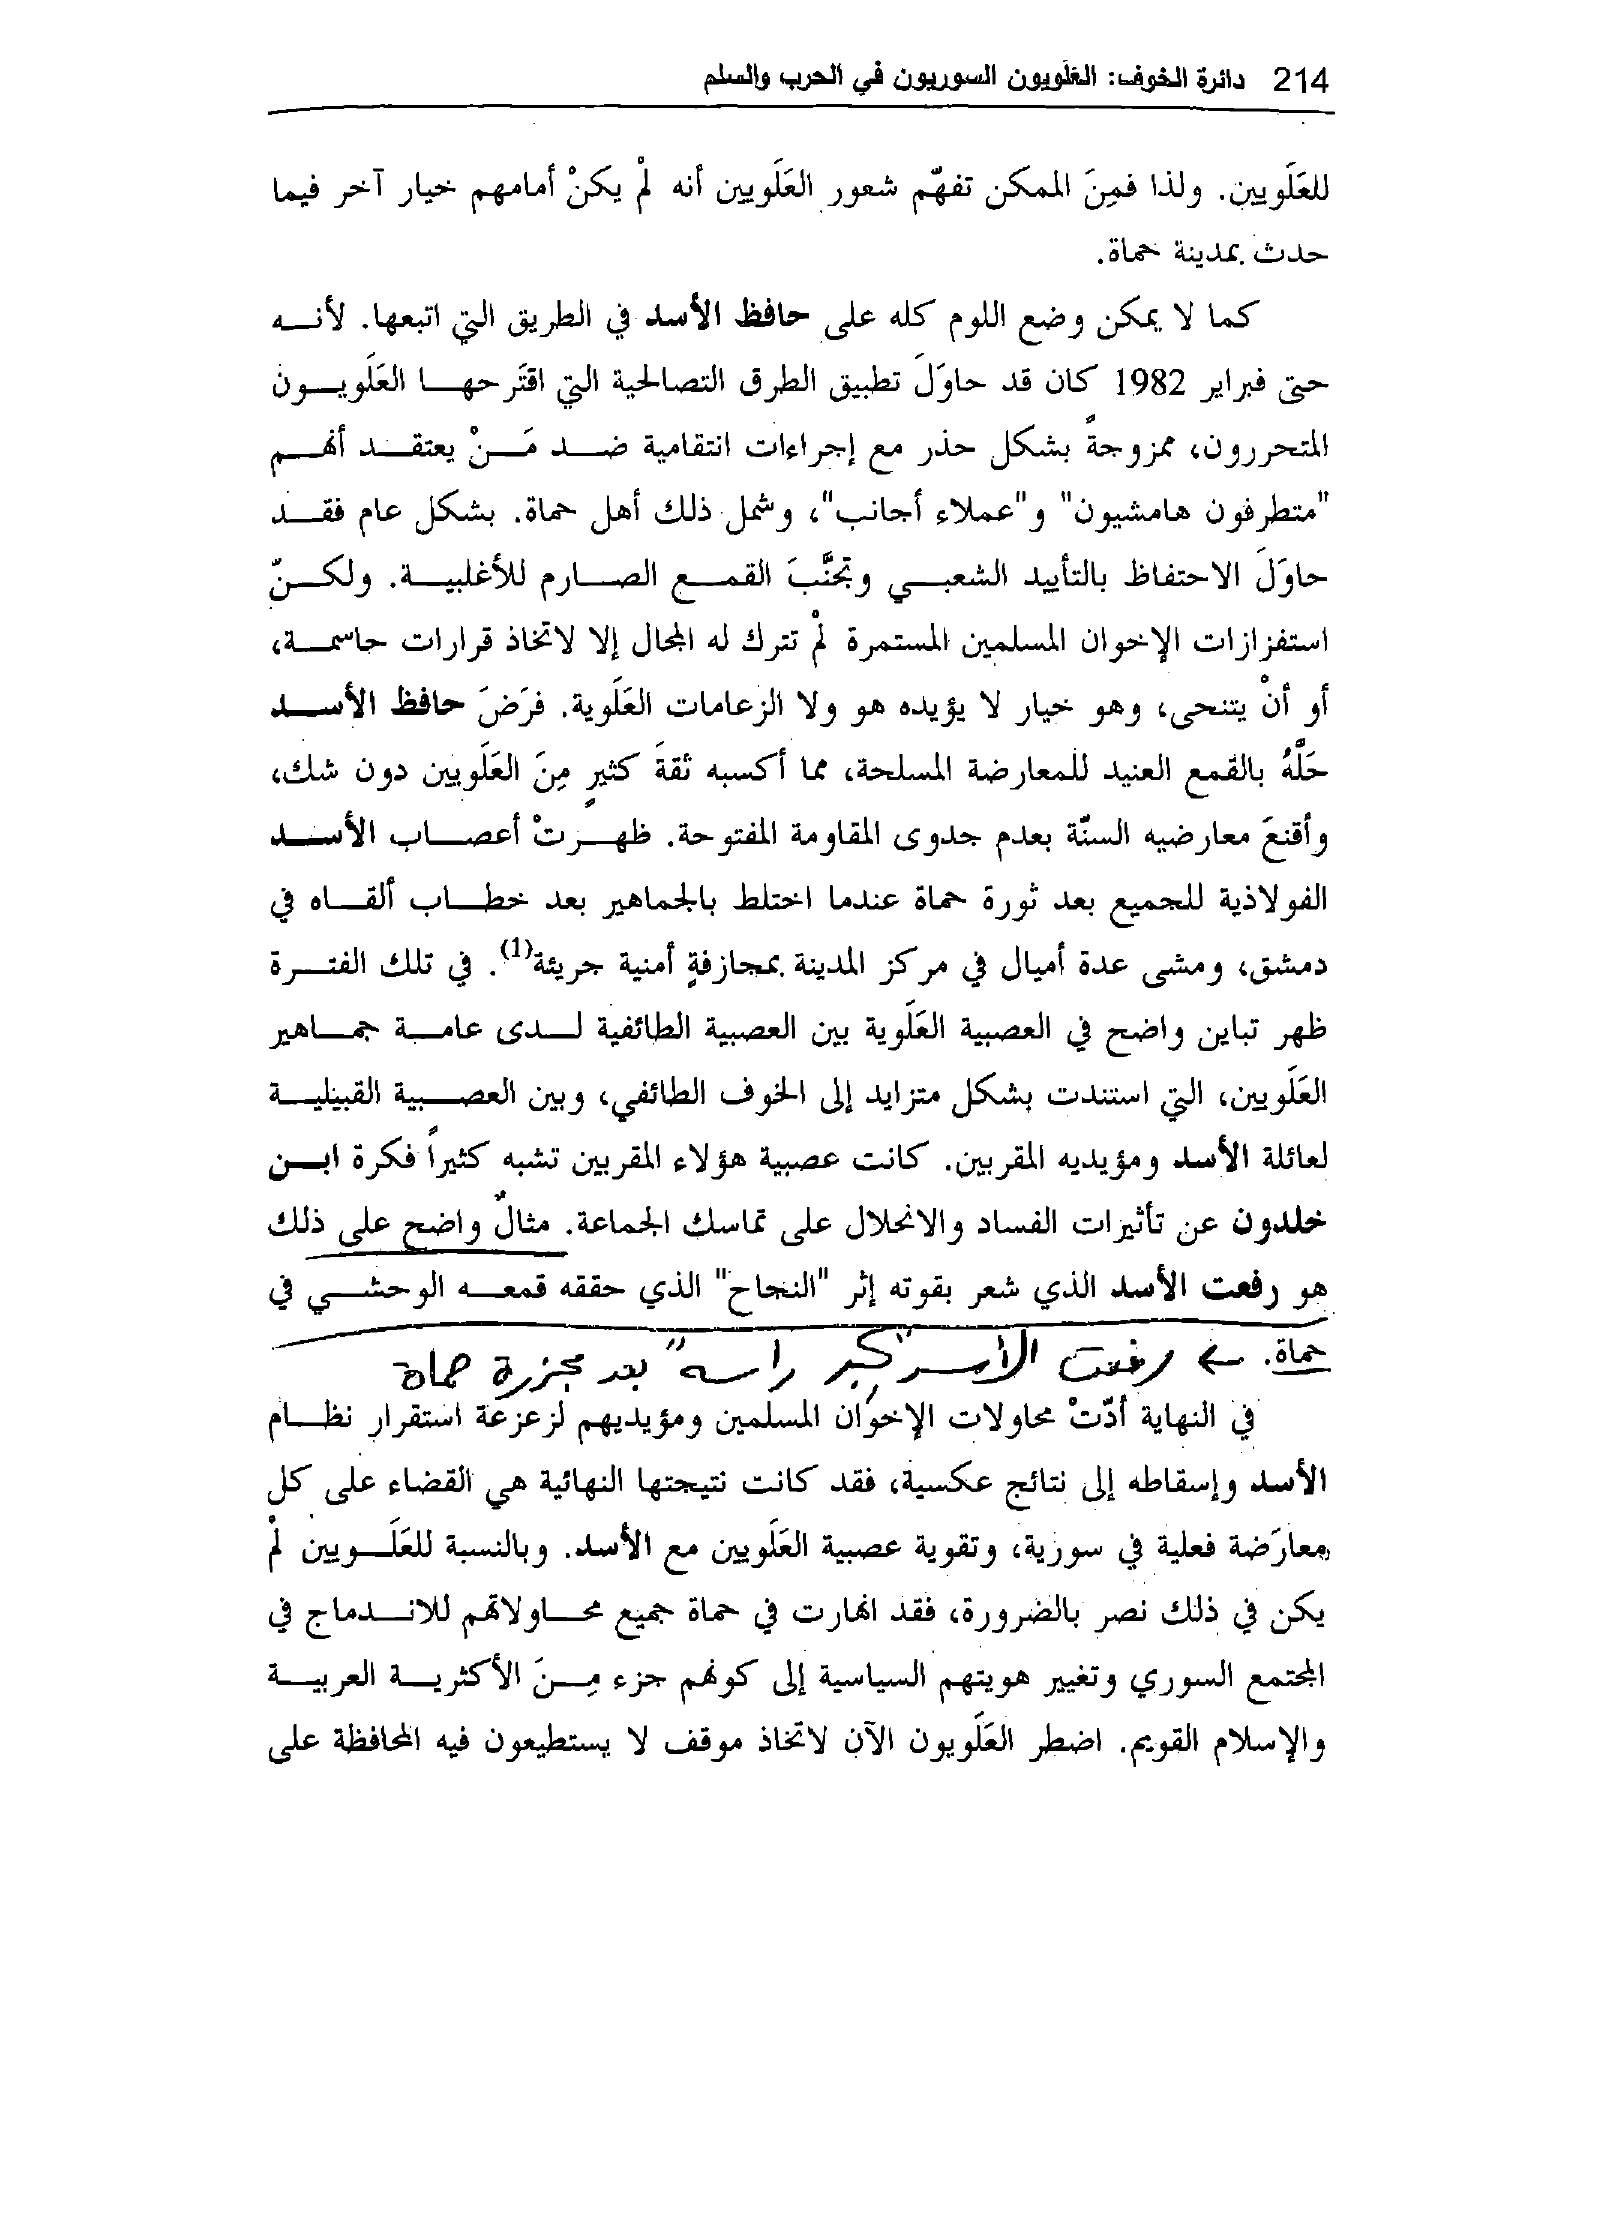 214 دائرة الخوف: العَلَويون السوريون في الحرب والسلم
للعَلَويين. ولذا فمِنَ الممكن تفهّم شعور العَلَويين أنه لمْ يكنْ أمامهم خيار آخر فيما
حدث بمدينة حماة.
كما لا يمكن وضع اللوم كله على حافظ الأسد في الطريق التي اتبعها. لأنه
حتى فبراير 1982 كان قد حاوَلَ تطبيق الطرق التصالحية التي اقتَرحها العَلَويون
المتحررون، ممزوجةً بشكل حذر مع إجراءات انتقامية ضد مَنْ يعتقد أنهم
"متطرفون هامشيون" و"عملاء أجانب"، وشمل ذلك أهل حماة. بشكل عام فقد
حاوَلَ الاحتفاظ بالتأييد الشعبي وتجنَّبَ القمع الصارم للأغلبية. ولكنّ
استفزازات الإخوان المسلمين المستمرة لمْ تترك له المجال إلا لاتخاذ قرارات حاسمة،
أو أنْ يتنحى، وهو خيار لا يؤيده هو ولا الزعامات العَلَوية. فرَضَ حافظ الأسد
حَلَّهُ بالقمع العنيد للمعارضة المسلحة، مما أكسبه ثقةَ كثيرٍ مِنَ العَلَويين دون شك،
وأقنعَ معارضيه السنّة بعدم جدوى المقاومة المفتوحة. ظهرتْ أعصاب الأسد
الفولاذية للجميع بعد ثورة حماة عندما اختلط بالجماهير بعد خطاب ألقاه في
دمشق، ومشى عدة أميال في مركز المدينة بمجازفةٍ أمنية جريئة(1). في تلك الفترة
ظهر تباين واضح في العصبية العَلَوية بين العصبية الطائفية لدى عامة جماهير
العَلَويين، التي استندت بشكل متزايد إلى الخوف الطائفي، وبين العصبية القبيلية
لعائلة الأسد ومؤيديه المقربين. كانت عصبية هؤلاء المقربين تشبه كثيراً فكرة ابن
خلدون عن تأثيرات الفساد والانحلال على تماسك الجماعة. مثالٌ واضح على ذلك
هو رفعت الأسد الذي شعر بقوته إثر "النجاح" الذي حققه قمعه الوحشي في
حماة. ← رفعت الأسد "كبر راسه" بعد مجزرة حماة
في النهاية أدّتْ محاولات الإخوان المسلمين ومؤيديهم لزعزعة استقرار نظام
الأسد وإسقاطه إلى نتائج عكسية، فقد كانت نتيجتها النهائية هي القضاء على كل
معارَضة فعلية في سورية، وتقوية عصبية العَلَويين مع الأسد. وبالنسبة للعَلَويين لمْ
يكن في ذلك نصر بالضرورة، فقد انهارت في حماة جميع محاولاتهم للاندماج في
المجتمع السوري وتغيير هويتهم السياسية إلى كونهم جزء مِنَ الأكثرية العربية
والإسلام القويم. اضطر العَلَويون الآن لاتخاذ موقف لا يستطيعون فيه المحافظة على